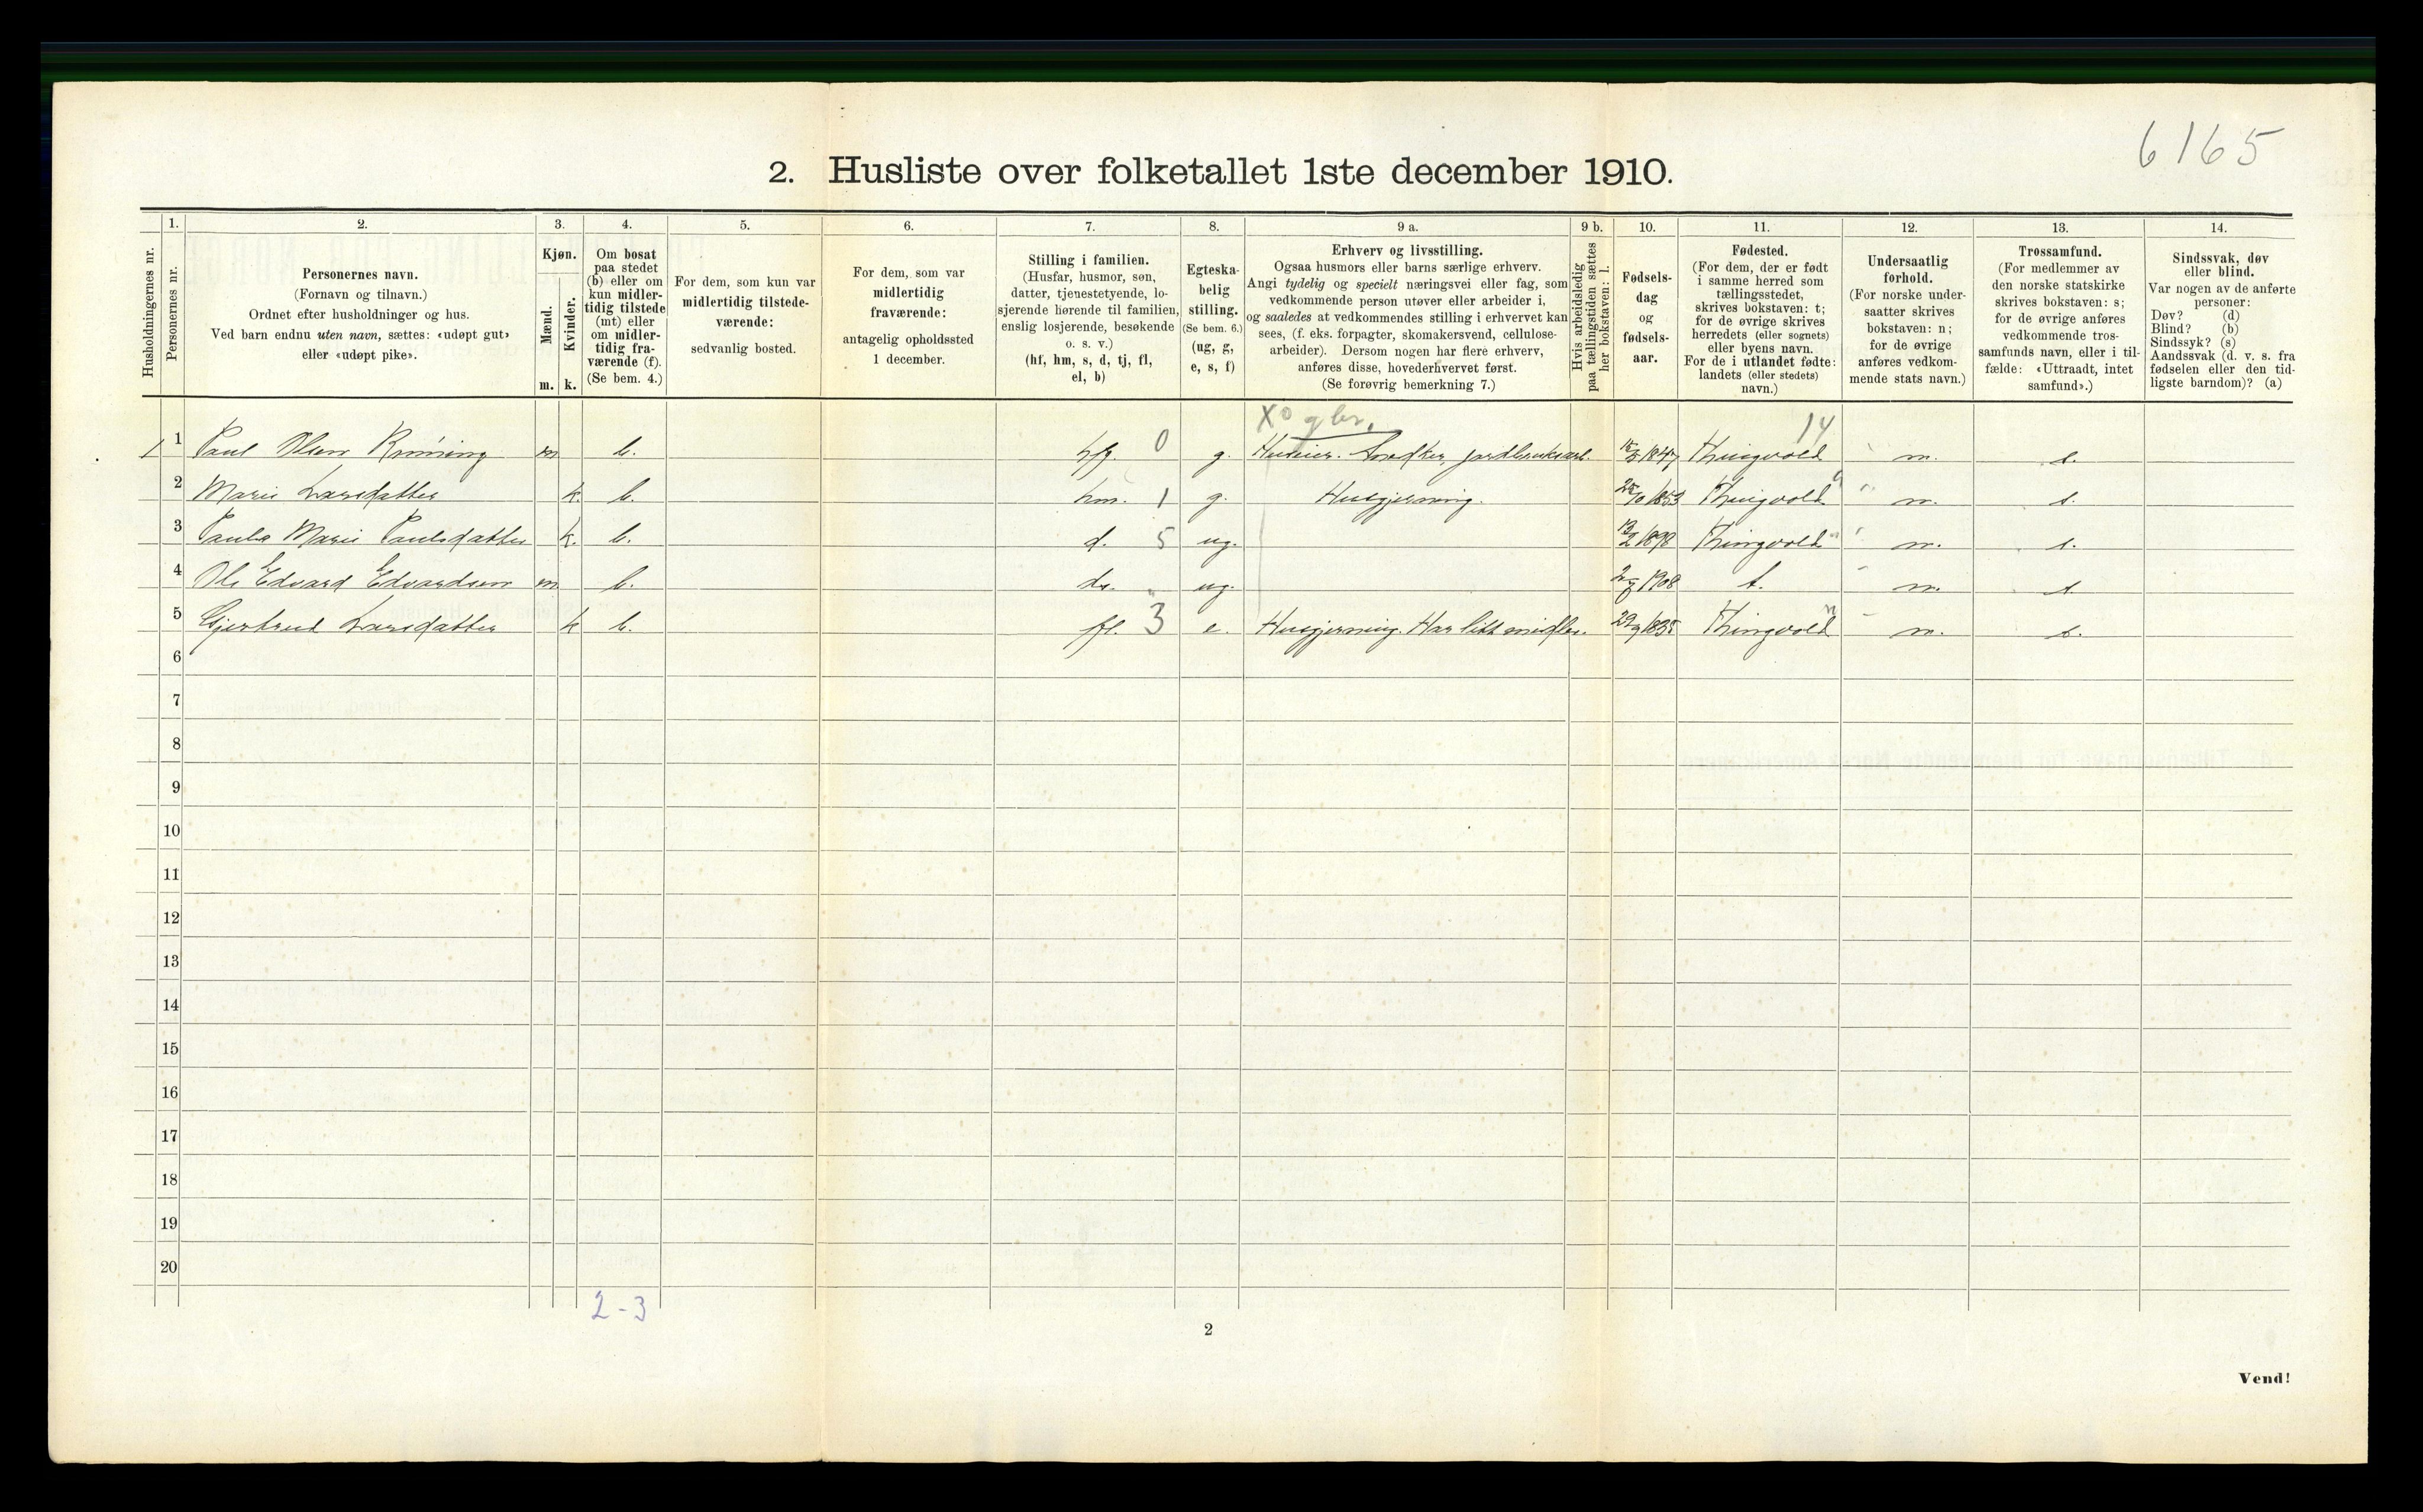 6165
2. Husliste over folketallet 1ste december 1910.
Husholdningernes nr.
1.
Personernes nr.
2.
Personernes navn.
(Fornavn og tilnavn.)
Ordnet efter husholdninger og hus.
Ved barn endnu uten navn, sættes: «udøpt gut»
eller «udøpt pike».
3.
Kjøn.
Mænd.
Kvinder.
m. k.
4.
Om bosat
paa stedet
(b) eller om
kun midler-
tidig tilstede
(mt) eller
om midler-
tidig fra-
værende (f).
(Se bem. 4.)
5.
For dem, som kun var
midlertidig tilstede-
værende:
sedvanlig bosted.
6.
For dem, som var
midlertidig
fraværende:
antagelig opholdssted
1 december.
7.
Stilling i familien.
(Husfar, husmor, søn,
datter, tjenestetyende, lo-
sjerende hørende til familien,
enslig losjerende, besøkende
o. s. v.)
(hf, hm, s, d, tj, fl,
el, b)
8.
Egteska-
belig
stilling.
(Se bem. 6.)
(ug, g,
e, s, f)
9 a.
Erhverv og livsstilling.
Ogsaa husmors eller barns særlige erhverv.
Angi tydelig og specielt næringsvei eller fag, som
vedkommende person utøver eller arbeider i,
og saaledes at vedkommendes stilling i erhvervet kan
sees, (f. eks. forpagter, skomakersvend, cellulose-
arbeider). Dersom nogen har flere erhverv,
anføres disse, hovederhvervet først.
(Se forøvrig bemerkning 7.)
9 b.
Hvis arbeidsledig
paa tællingstiden sættes
her bokstaven: l.
10.
Fødsels-
dag
og
fødsels-
aar.
11.
Fødested.
(For dem, der er født
i samme herred som
tællingsstedet,
skrives bokstaven: t;
for de øvrige skrives
herredets (eller sognets)
eller byens navn.
For de i utlandet fødte:
landets (eller stedets)
navn.)
12.
Undersaatlig
forhold.
(For norske under-
saatter skrives
bokstaven: n;
for de øvrige
anføres vedkom-
mende stats navn.)
13.
Trossamfund.
(For medlemmer av
den norske statskirke
skrives bokstaven: s;
for de øvrige anføres
vedkommende tros-
samfunds navn, eller i til-
fælde: «Uttraadt, intet
samfund».)
14.
Sindssvak, døv
eller blind.
Var nogen av de anførte
personer:
Døv? (d)
Blind? (b)
Sindssyk? (s)
Aandssvak (d. v. s. fra
fødselen eller den tid-
ligste barndom)? (a)
14
1 1 Paul Olsen m b. hf. 0 g. Huseier. Snedker, 1847 Thingvold n. s.
2 Marie Larsdatter k. b. hm. 1 g. Husgjerning. 1853 Thingvold n. s.
3 Paula Marie Paulsdatter k. b. d. 5 ug. 1898 Thingvold n. s.
4 Ole Edvard Edvardsen m b. ug. 1908 t. n. s.
5 Gjertrud Larsdatter k b. fl. 3 e. Husgjerning. Har litt midler. Thingvold n. s.
6
7
8
9
10
11
12
13
14
15
16
17
18
19
20
2-3
2
Vend!